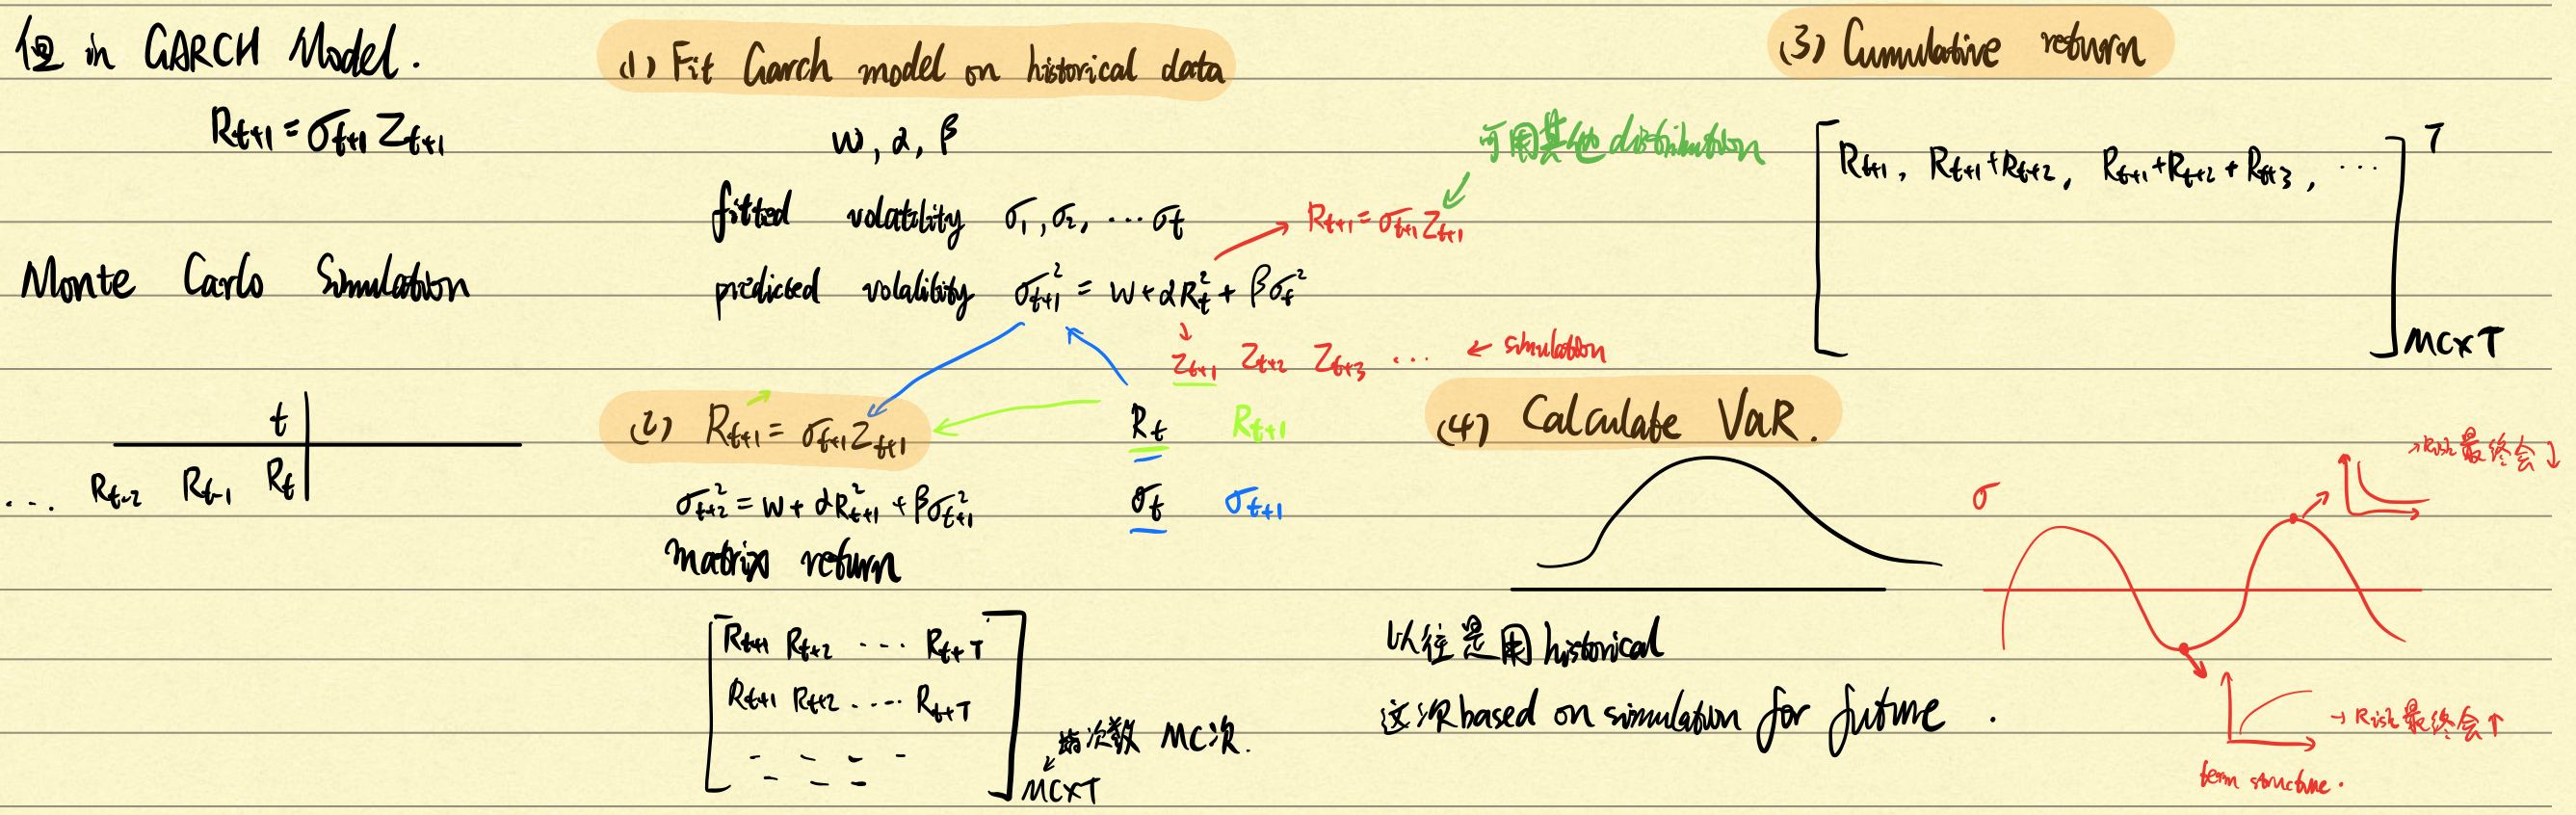 但 in GARCH Model.
R_{t+1} = σ_{t+1} Z_{t+1}
Monte Carlo Simulation
t
... R_{t-2} R_{t-1} R_t
(1) Fit Garch model on historical data
w, α, β
fitted volatility σ_1, σ_2, ... σ_t
predicted volatility σ_{t+1}^2 = w + αR_t^2 + βσ_t^2
R_{t+1} = σ_{t+1} Z_{t+1}
可用其他 distribution
Z_{t+1} Z_{t+2} Z_{t+3} ... ← simulation
(2) R_{t+1} = σ_{t+1} Z_{t+1}
R_t R_{t+1}
σ_t σ_{t+1}
σ_{t+2}^2 = w + αR_{t+1}^2 + βσ_{t+1}^2
matrix return
R_{t+1} R_{t+2} ... R_{t+T}
R_{t+1} R_{t+2} .... R_{t+T}
次数 MC次.
MC×T
(3) Cumulative return
R_{t+1}, R_{t+1}+R_{t+2}, R_{t+1}+R_{t+2}+R_{t+3}, ...
T
MC×T
(4) Calculate VaR.
以往是用 historical
这次 based on simulation for future.
σ
→ Risk 最终会 ↓
→ Risk 最终会 ↑
term structure.